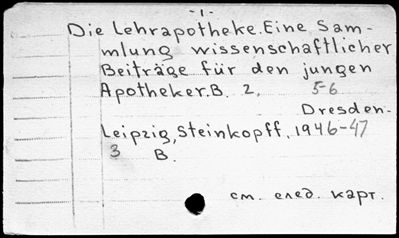 -1-
Die Lehrapotheke. Eine Sam-
mlung wissenschaftlicher
Beiträge für den jungen
Apotheker. B. 2, 5-6
Dresden-
Leipzig, Steinkopff, 1946-47
3 B.
см. след. карт.